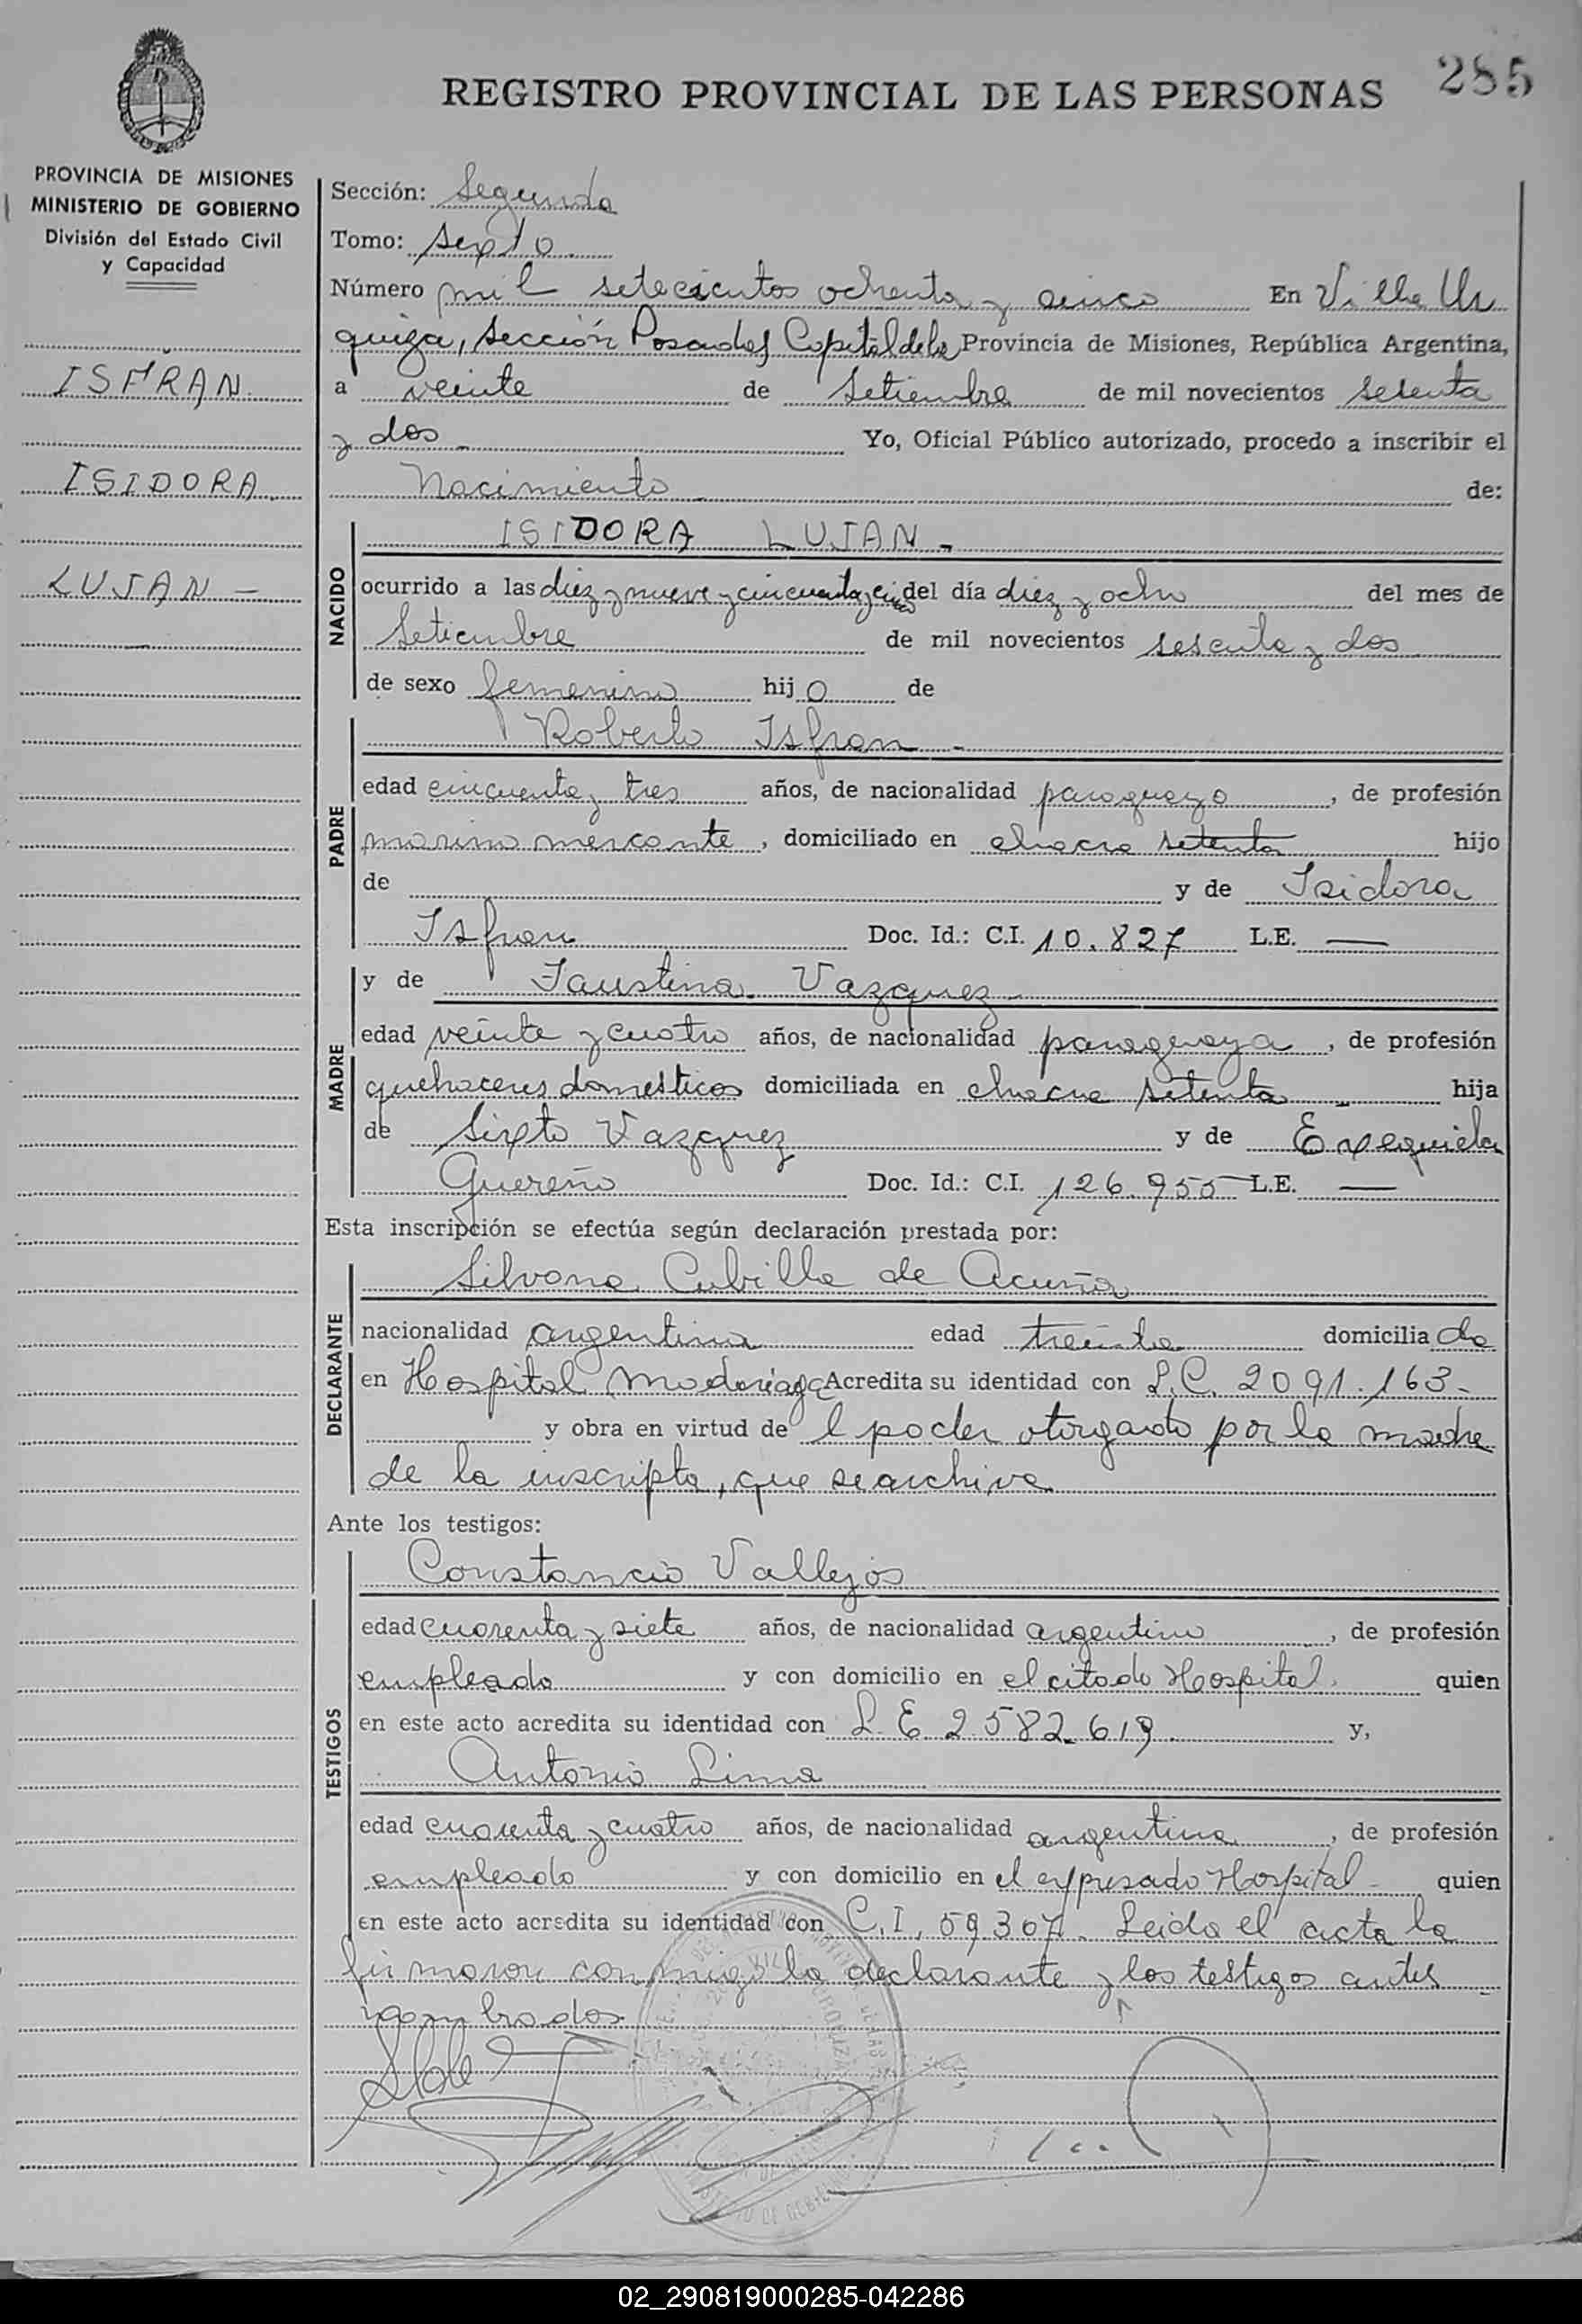 285
REGISTRO PROVINCIAL DE LAS PERSONAS
PROVINCIA DE MISIONES
MINISTERIO DE GOBIERNO
División del Estado Civil
y Capacidad
ISFRAN
ISIDORA
LUJAN -
Sección: Segunda
Tomo: Sexto
Número mil setecientos ochenta y cinco En Villa Ur
quiza, Sección Posadas Capital de la Provincia de Misiones, República Argentina,
a veinte de Setiembre de mil novecientos sesenta
y dos Yo, Oficial Público autorizado, procedo a inscribir el
Nacimiento de:
NACIDO
ISIDORA LUJAN -
ocurrido a las diez y nueve y cincuenta y cinco del día diez y ocho del mes de
Setiembre de mil novecientos sesenta y dos
de sexo femenino hijo de
PADRE
Roberto Isfran -
edad cincuenta y tres años, de nacionalidad paraguayo, de profesión
marino mercante, domiciliado en chacra setenta hijo
de y de Isidora
Isfran Doc. Id.: C.I. 10.827 L.E. —
MADRE
y de Faustina Vazquez
edad veinte y cuatro años, de nacionalidad paraguaya, de profesión
quehaceres domesticos domiciliada en chacra setenta hija
de Sixto Vazquez y de Exequiela
Quereño Doc. Id.: C.I. 126.955 L.E. —
Esta inscripción se efectúa según declaración prestada por:
DECLARANTE
Silvana Cubilla de Acuña
nacionalidad argentina edad treinta domiciliada
en Hospital Madariaga Acredita su identidad con L.C. 2091.163-
y obra en virtud de l poder otorgado por la madre
de la inscripta, que se archiva
Ante los testigos:
TESTIGOS
Constancio Vallejos
edad cuarenta y siete años, de nacionalidad argentino, de profesión
empleado y con domicilio en el citado Hospital quien
en este acto acredita su identidad con L.E. 2.582.619 y,
Antonio Lima
edad cuarenta y cuatro años, de nacionalidad argentina, de profesión
empleado y con domicilio en el expresado Hospital - quien
en este acto acredita su identidad con C.I. 59307. Leida el acta la
firmaron conmigo la declarante y los testigos antes
nombrados
02_290819000285-042286